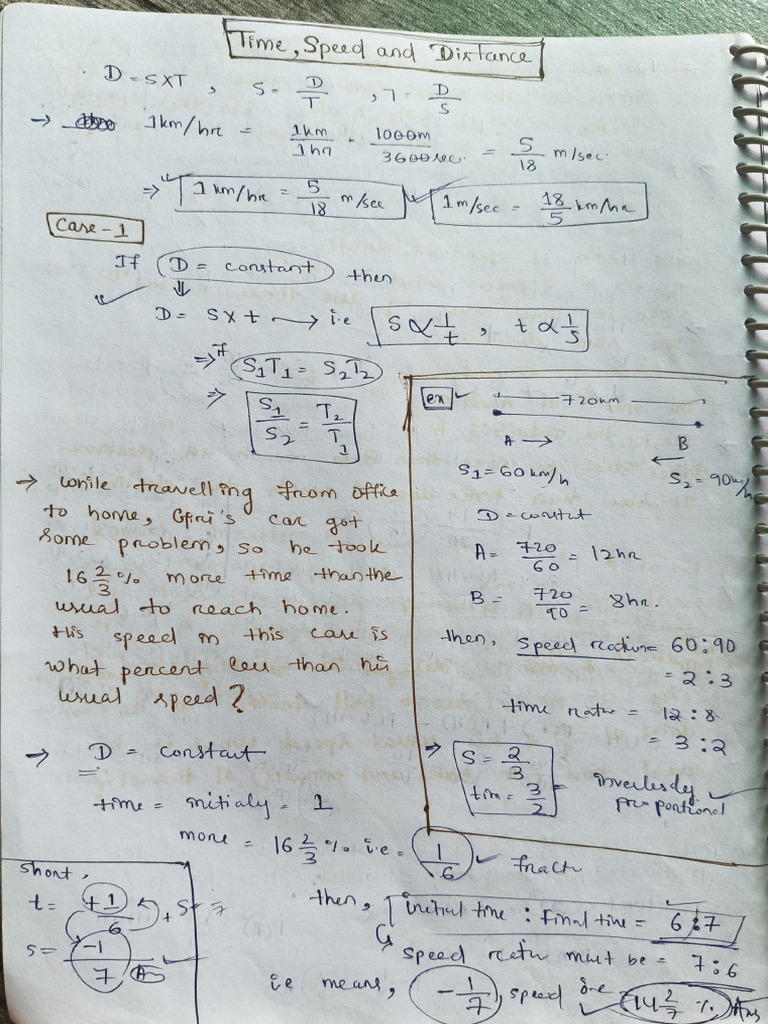 Time, Speed and Distance
D = S×T , S = D/T , T = D/S
→ 1km/hr = 1km/1hr = 1000m/3600sec. = 5/18 m/sec.
⇒ 1km/hr = 5/18 m/sec 1m/sec = 18/5 km/hr
Case-1
If D = constant then
⇓
D = S×t → i.e S ∝ 1/t , t ∝ 1/S
⇒ If S1T1 = S2T2
⇒ S1/S2 = T2/T1
→ While travelling from office
to home, Giri's car got
some problem, so he took
16 2/3 % more time than the
usual to reach home.
His speed in this case is
what percent less than his
usual speed?
ex
720km
A → B ←
S1 = 60km/h S2 = 90km/h
D = constat
A = 720/60 = 12hr
B = 720/90 = 8hr.
then, Speed ratio = 60:90
= 2:3
time ratio = 12:8
= 3:2
⇒ S = 2/3
tim = 3/2 = inversely
proportional
→ D = constant
time = initialy = 1
more = 16 2/3 % i.e = 1/6 fractn
then, initial time : final time = 6:7
speed ratio must be = 7:6
i.e means, -1/7, speed i.e 14 2/7 % Ans
short,
t = +1/6
s = -1/7 Ans